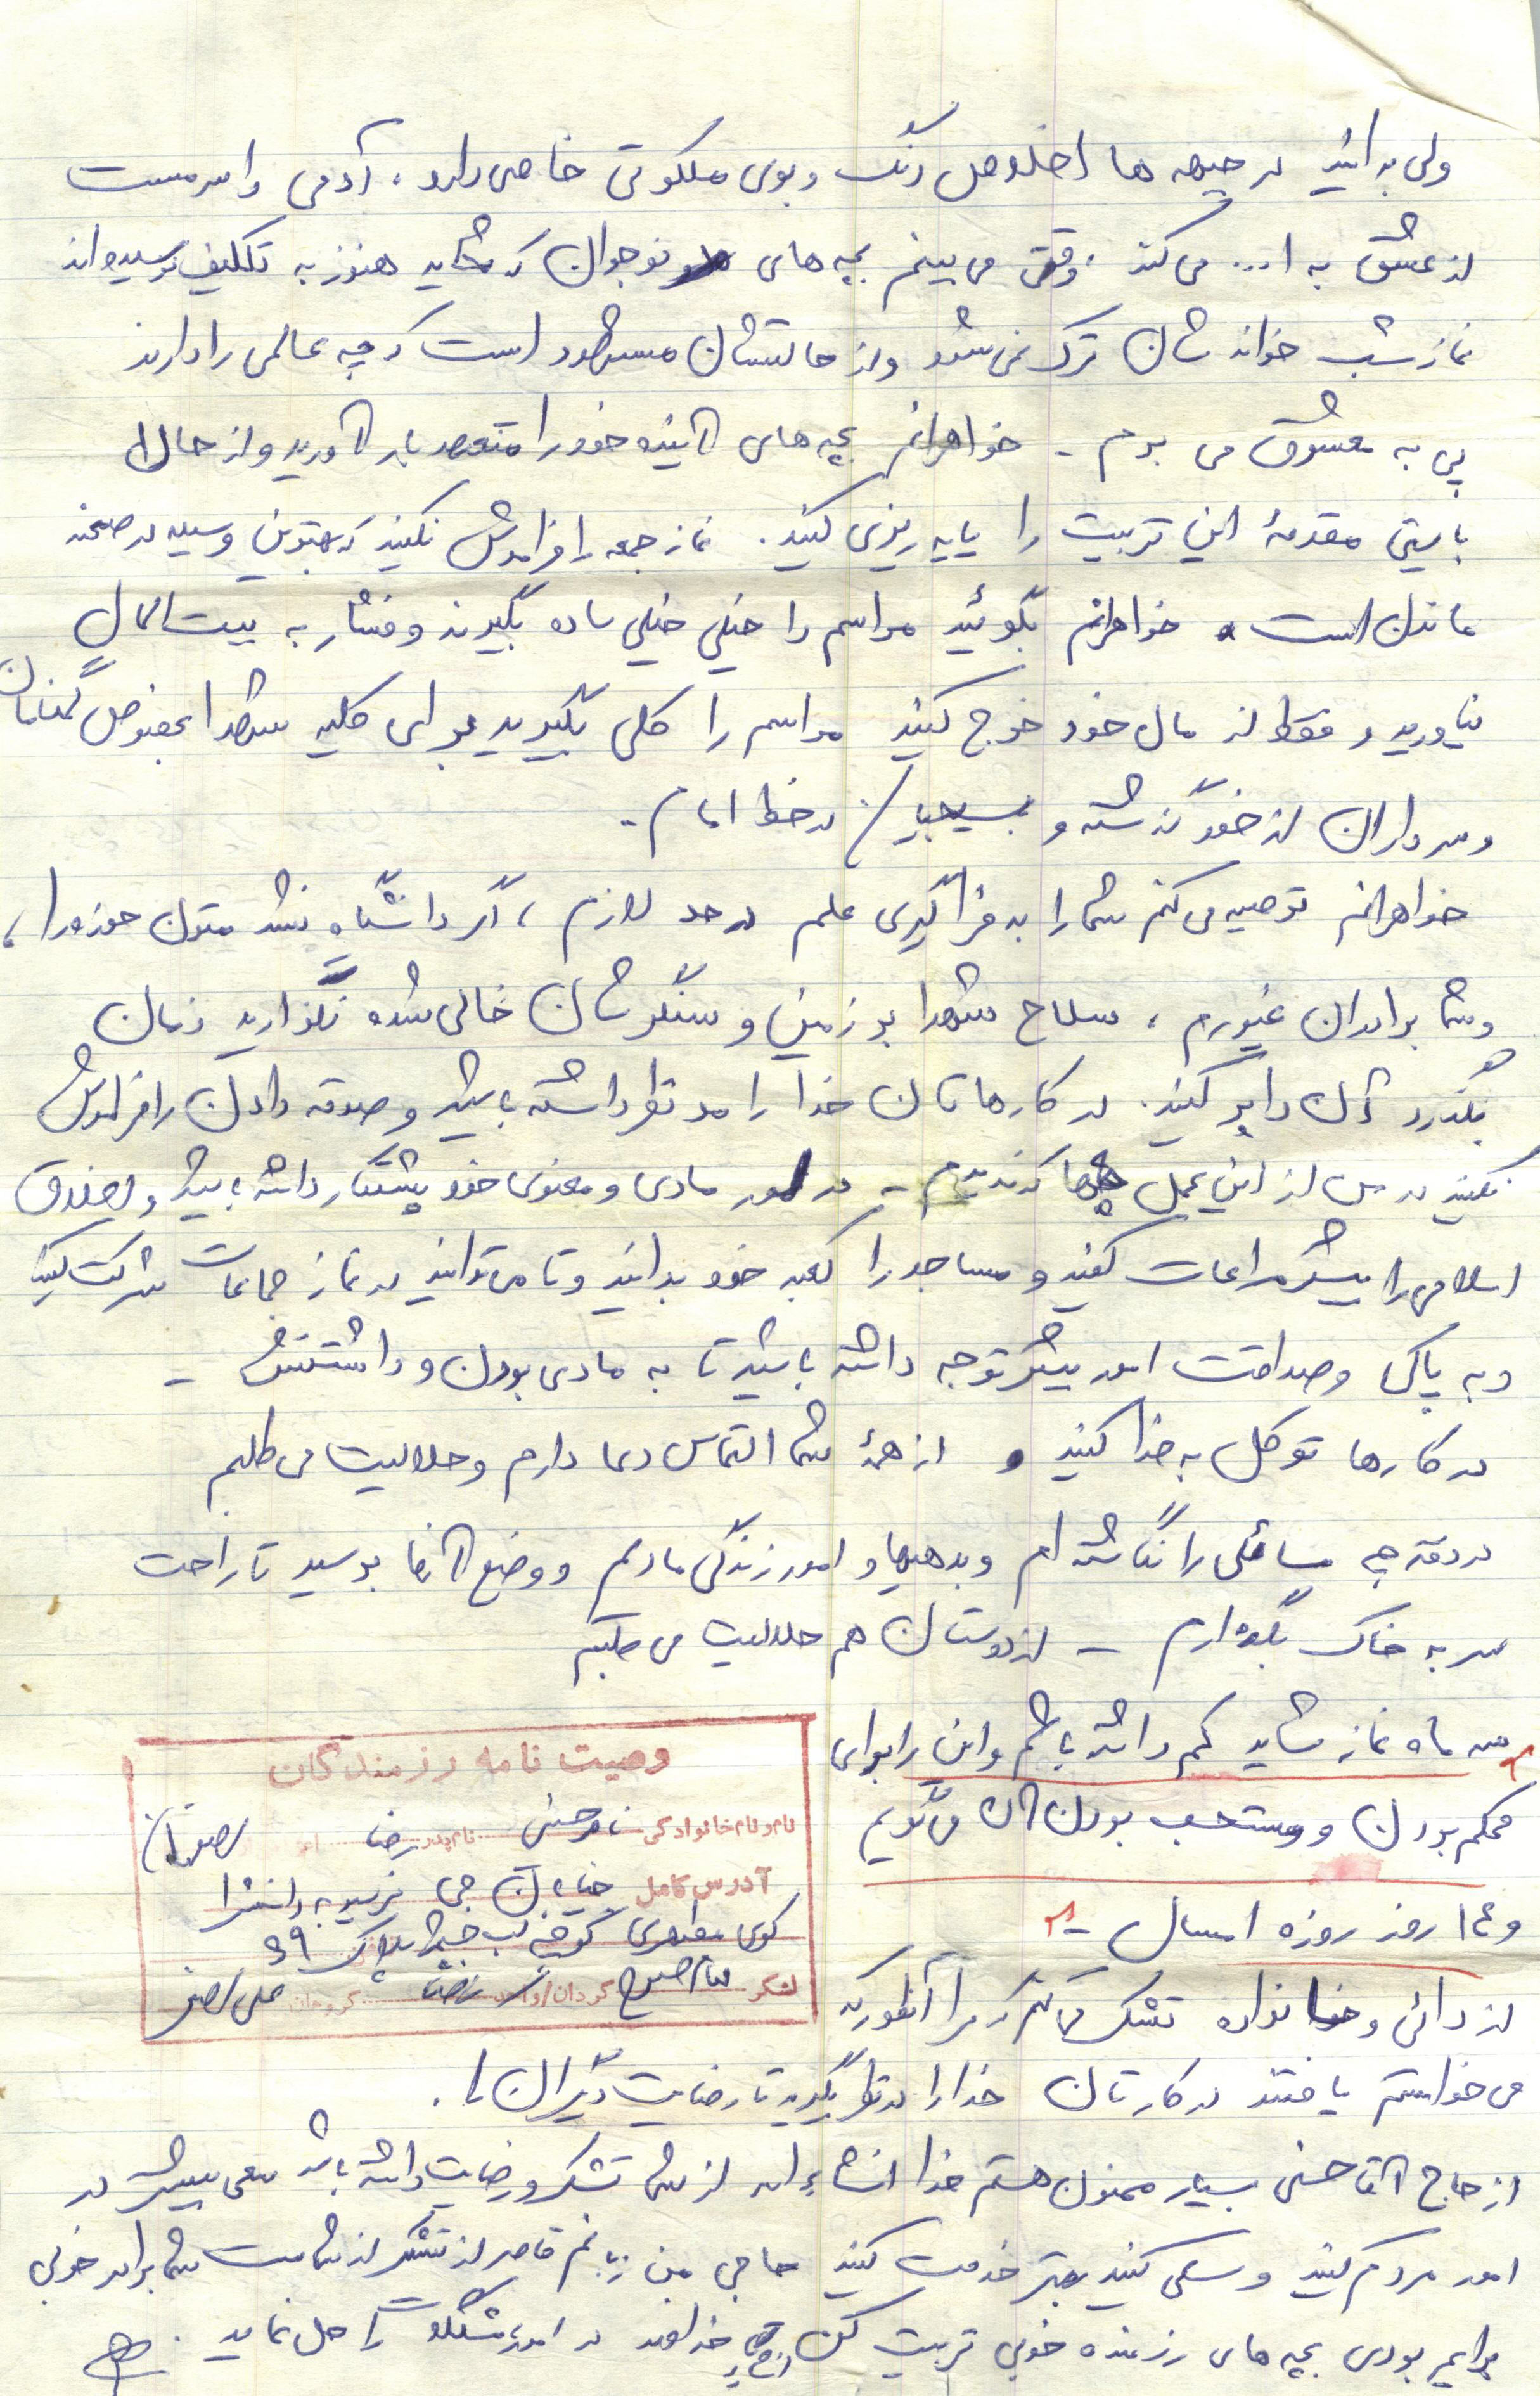 ولی بدانید در جبهه ها اخلاص رنگ و بوی ملکوتی خاصی دارد، آدمی را سرمست
از عشق به ا... می کند. وقتی می بینم بچه های نوجوان که شاید هنوز به تکلیف نرسیده اند
نماز شب خواندنشان ترک نمی شود و از حالتشان مشهود است که چه عالمی را دارند
پی به معشوق می برم - خواهرانم بچه های آینده خود را متعهد بار آورید و از حالا
بایستی مقدمهٔ این تربیت را پایه ریزی کنید. نماز جمعه را فراموش نکنید که بهترین وسیله در صحنه
ماندن است. خواهرانم بگوئید مراسم را خیلی خیلی ساده بگیرند و فشار به بیت المال
نیاورید و فقط از مال خود خرج کنید مراسم را کلی بگیرید برای کلیه شهدا بخصوص گمنامان
و سرداران از خود گذشته و بسیجیان در خط امام.
خواهرانم توصیه می کنم شما را به فراگیری علم در حد لازم، اگر دانشگاه نشد متون حوزه را،
و شما برادران غیورم، سلاح شهدا بر زمین و سنگرشان خالی شده نگذارید زمان
بگذرد آن را پر کنید. در کارهاتان خدا را مد نظر داشته باشید و صدقه دادن را فراموش
نکنید که من از این عمل چها که ندیدم - در امور مادی و معنوی خود پشتکار داشته باشید و اخلاق
اسلامی را بیشتر مراعات کنید و مساجد را کعبه خود بدانید و تا می توانید در نماز جماعات شرکت کنید
و به پاکی و صداقت امور بیشتر توجه داشته باشید تا به مادی بودن و داشتنش -
در کارها توکل به خدا کنید و از همهٔ شما التماس دعا دارم و حلالیت می طلبم
در دفترچه مسائلی را نگاشته ام و بدهیها و امور زندگی مادیم و وضع آنها برسید تا راحت
سر به خاک بگذارم - از دوستان هم حلالیت می طلبم
سه ماه نماز شاید کم داشته باشم و این را برای
محکم بودن و مستحب بودن آن می گویم
و ۱۴ روز روزه امسال -
وصیت نامه رزمندگان
نام و نام خانوادگی نام پدر رضا
آدرس کامل خیابان جی نرسیده به
کوی مطهری کوچه پلاک ۳۹
لشکر گردان/واحد گروهان علی اصغر
از دائی و خانواده تشکر می کنم که مرا آنطور که
می خواستم یافتند در کارتان خدا را در نظر بگیرید تا رضایت دیگران را.
از حاج آقا حسنی بسیار ممنون هستم خدا انشاءا... از شما تشکر و رضایت داشته باشد سعی بیشتر در
امور مردم کنید و سعی کنید بهتر خدمت کنید حاجی من زبانم قاصر از تشکر از شماست شما برادر خوبی
برایم بودی بچه های رزمنده خوبی تربیت کن خداوند در امور مشکلات را حل نماید.